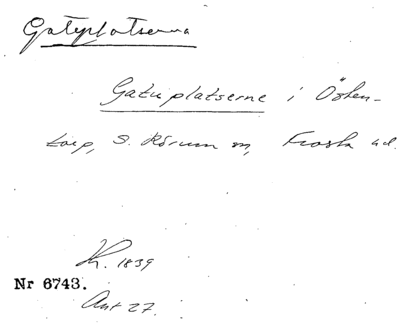 Gateplatserna
Gatuplatserne i Östen-
torp, S. Rörum m, Frosta hd.
K. 1839
Nr 6743.
Akt 27.